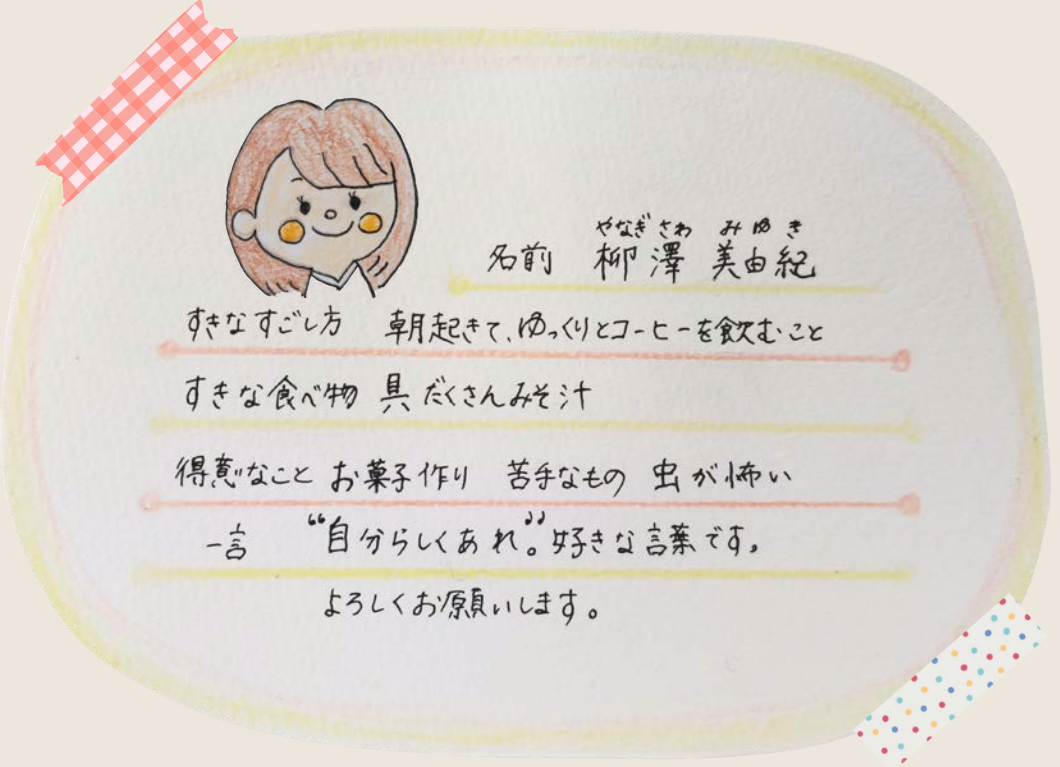 やなぎさわ みゆき
名前 柳澤 美由紀
すきなすごし方 朝起きて、ゆっくりとコーヒーを飲むこと
すきな食べ物 具だくさんみそ汁
得意なこと お菓子作り 苦手なもの 虫が怖い
一言 “自分らしくあれ。”好きな言葉です。
よろしくお願いします。